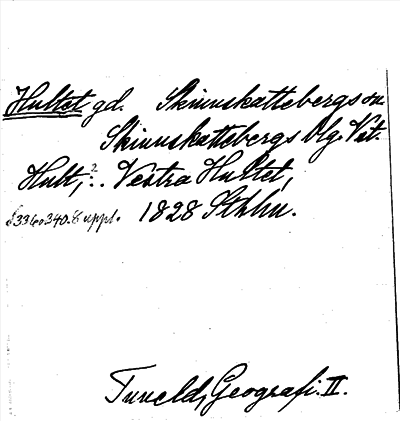 Hultet gd. Skinnskattebergs sn
Skinnskattebergs blg. Vst.
Hult, ?. Vestra Hultet,
s. 336 o 340. 6 uppl. 1828 Sthlm.
Tuneld, Geografi. II.